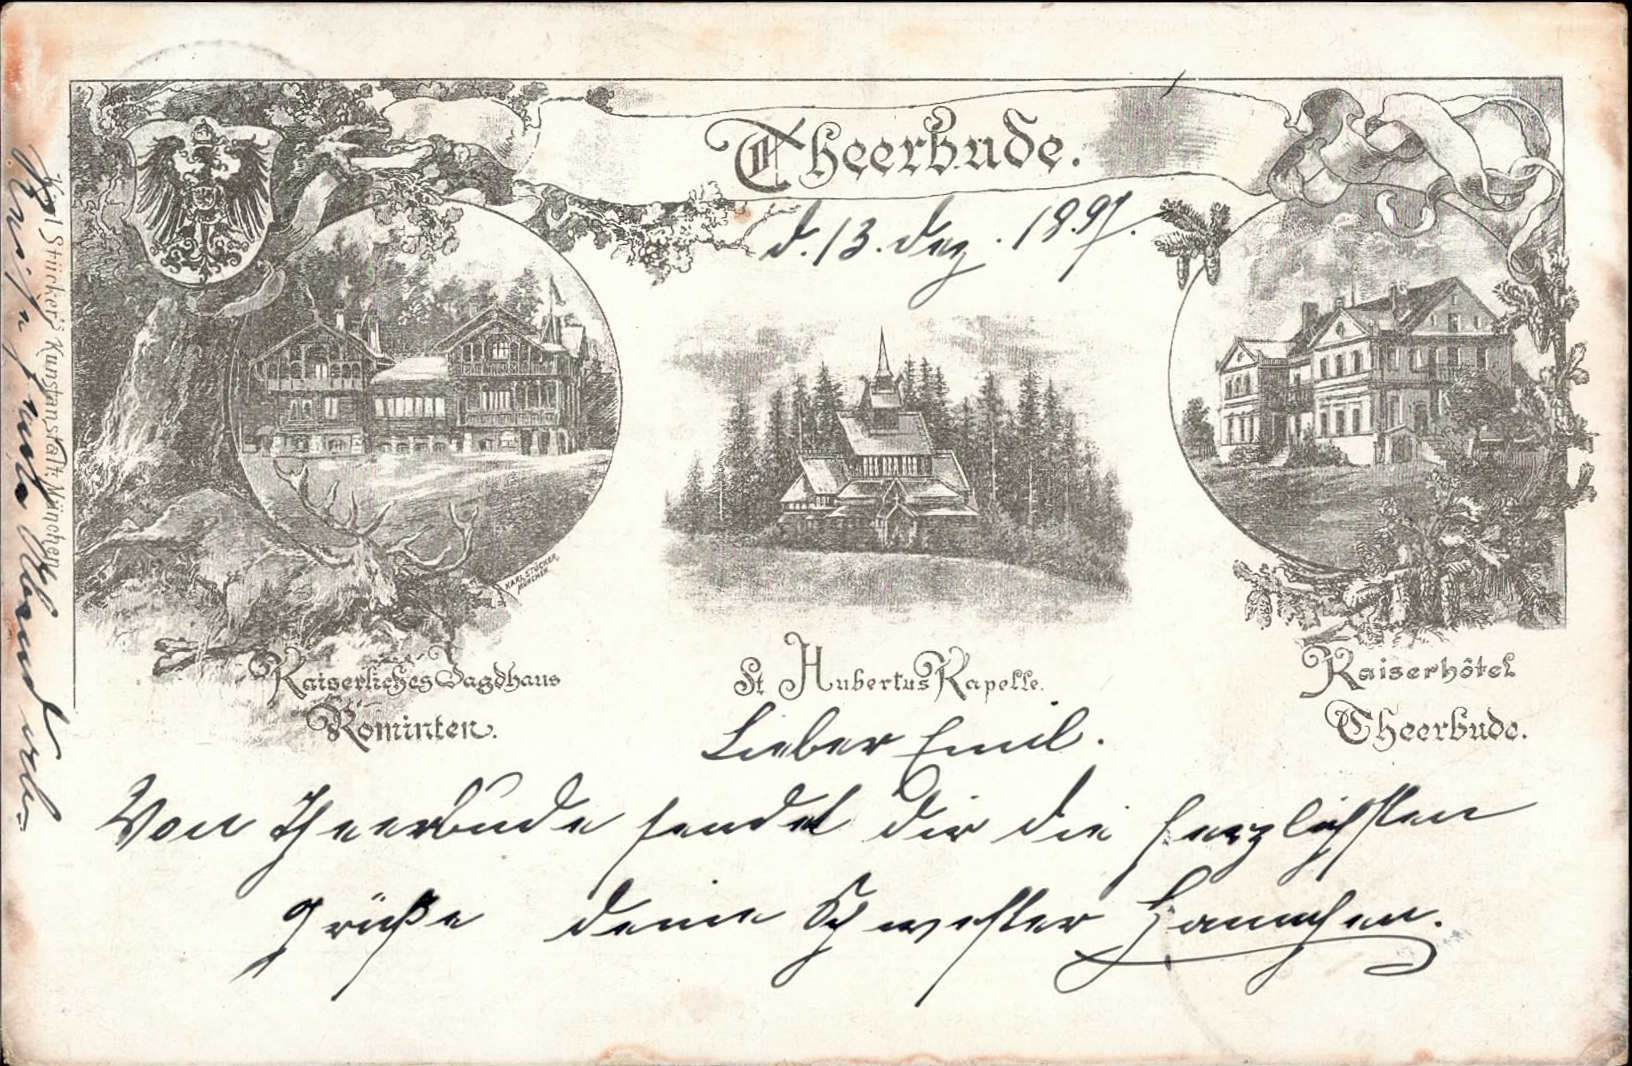 Theerbude.
d. 13. Dez. 1897.
KARL STÜCKER
MÜNCHEN
Kaiserliches Jagdhaus
Rominten.
St. Hubertus Kapelle.
Kaiserhôtel
Theerbude.
Lieber Emil.
Von Theerbude sendet dir die herzlichsten
Grüße deine Schwester Hannchen.
Karl Stücker's Kunstanstalt, München